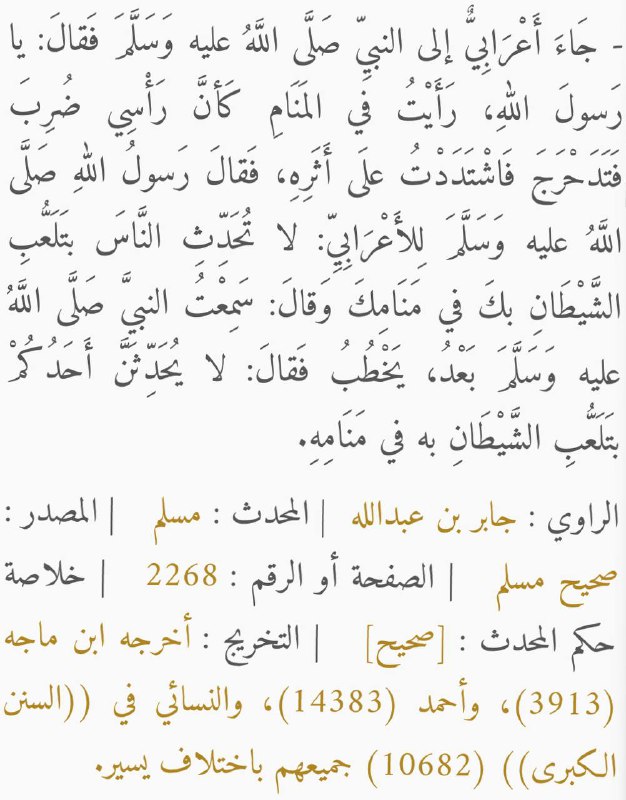 - جَاءَ أَعْرَابِيٌّ إلى النبيِّ صَلَّى اللَّهُ عليه وَسَلَّمَ فَقالَ: يا
رَسولَ اللهِ، رَأَيْتُ في المَنَامِ كَأنَّ رَأْسِي ضُرِبَ
فَتَدَحْرَجَ فَاشْتَدَدْتُ علَى أَثَرِهِ، فَقالَ رَسولُ اللهِ صَلَّى
اللَّهُ عليه وَسَلَّمَ لِلأَعْرَابِيِّ: لا تُحَدِّثِ النَّاسَ بتَلَعُّبِ
الشَّيْطَانِ بكَ في مَنَامِكَ وَقالَ: سَمِعْتُ النبيَّ صَلَّى اللَّهُ
عليه وَسَلَّمَ بَعْدُ، يَخْطُبُ فَقالَ: لا يُحَدِّثَنَّ أَحَدُكُمْ
بتَلَعُّبِ الشَّيْطَانِ به في مَنَامِهِ.
الراوي : جابر بن عبدالله | المحدث : مسلم | المصدر :
صحيح مسلم | الصفحة أو الرقم : 2268 | خلاصة
حكم المحدث : [صحيح] | التخريج : أخرجه ابن ماجه
(3913)، وأحمد (14383)، والنسائي في ((السنن
الكبرى)) (10682) جميعهم باختلاف يسير.